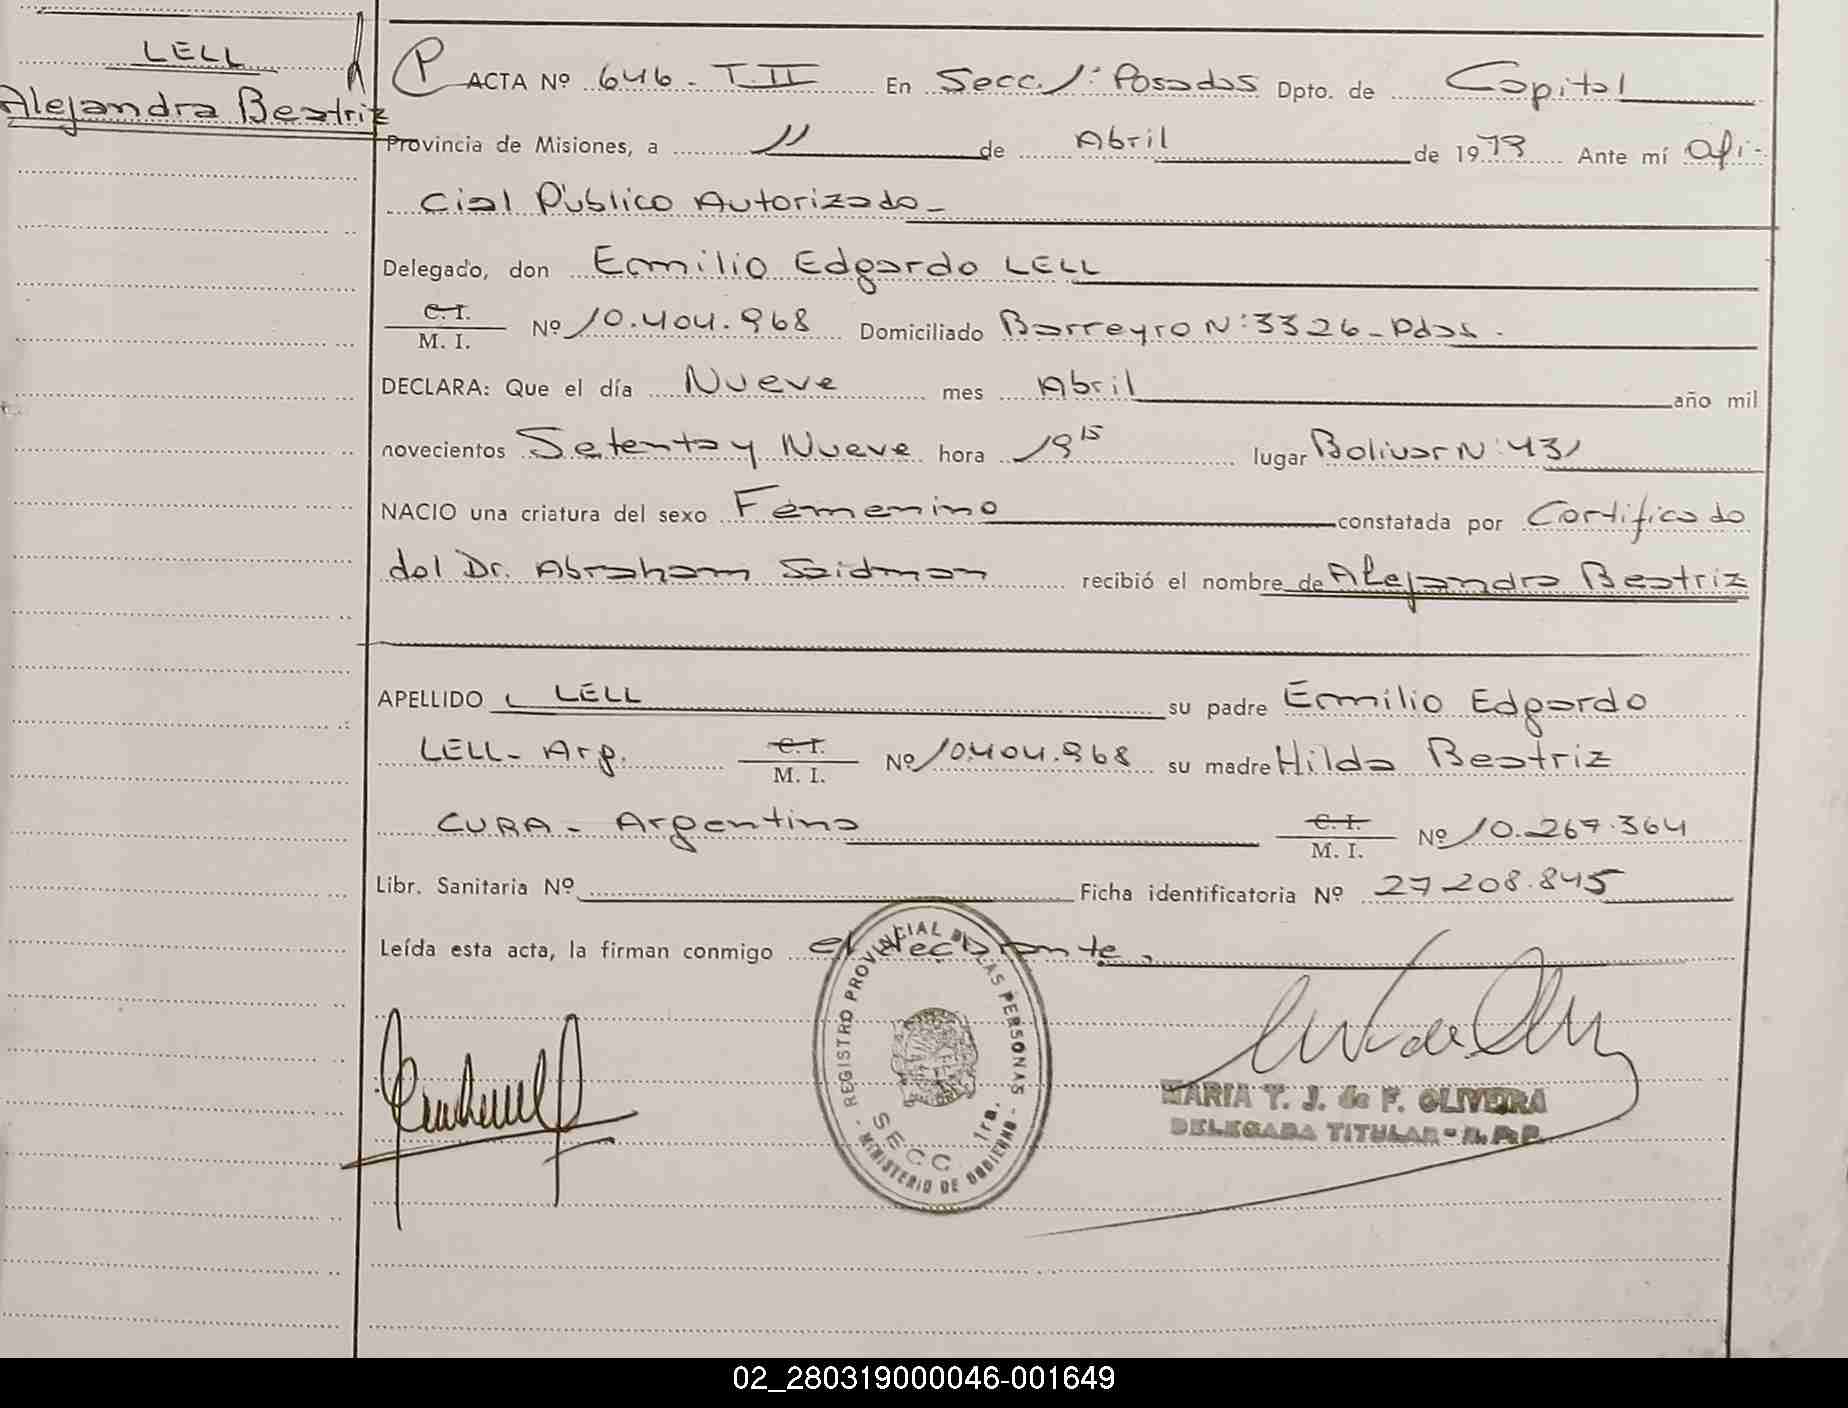 LELL
Alejandra Beatriz
P ACTA Nº 646 - T.II En Secc. 1ª Posadas Dpto. de Capital
Provincia de Misiones, a 11 de Abril de 1979 Ante mí Ofi-
cial Público Autorizado-
Delegado, don Emilio Edgardo LELL
C.I.
M. I. Nº 10.404.968 Domiciliado Barreyro Nº 3326 - Pdas.
DECLARA: Que el día Nueve mes Abril año mil
novecientos Setenta y Nueve hora 19 15 lugar Bolivar Nº 431
NACIO una criatura del sexo Femenino constatada por Certificado
del Dr. Abraham Saidman recibió el nombre de Alejandra Beatriz
APELLIDO LELL su padre Emilio Edgardo
LELL - Arg. C.I. M. I. Nº 10.404.968 su madre Hilda Beatriz
CURA - Argentina C.I. M. I. Nº 10.267.364
Libr. Sanitaria Nº Ficha identificatoria Nº 27 208.845
Leída esta acta, la firman conmigo el declarante.
REGISTRO PROVINCIAL DE LAS PERSONAS
SECC 1ra.
- MINISTERIO DE GOBIERNO -
MARIA T. J. de F. OLIVEIRA
DELEGADA TITULAR - R. P. P.
02_280319000046-001649